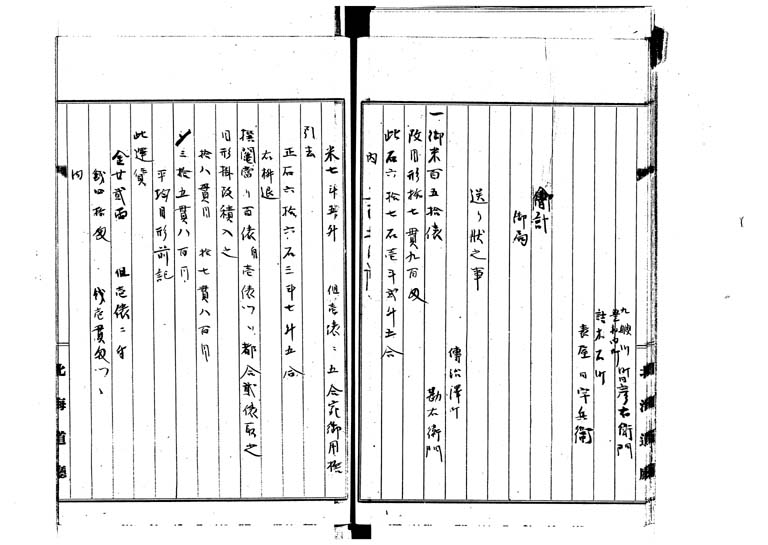 九艘川町彦右衛門
詰木石町
表屋日宇兵衛
會計
御局
送り状之事
傳治澤町
勘太衛門
一御米百五拾俵
改目形拾七貫九百匁
此石六拾七石壱斗弐升五合
内
北海道廳
米七斗五升 但壱俵ニ五合宛御用捨
引去
正石六拾六石三斗七升五合
太掛退
撰圖當り百俵目壱俵ツヽ都合弐俵取之
目形掛改積入之
拾八貫目 拾七貫八百目
〆三拾五貫八百目
平均目形前記
此運賃
金廿弐両 但壱俵ニ付
銭四拾匁 銭壱貫匁ツヽ
内
北海道廳